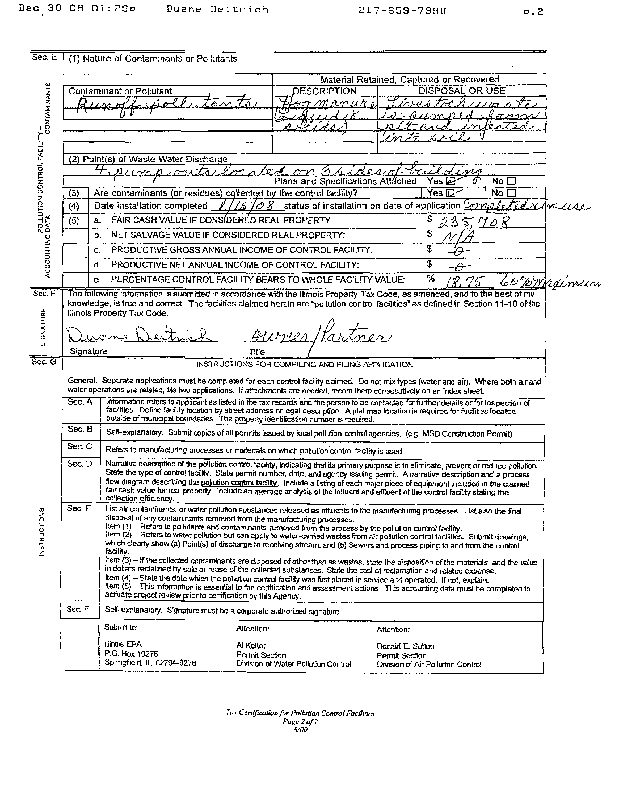 Dec 30 08 01:25p Duane Deitrich 217-659-7980 p.2
Sec. E (1) Nature of Contaminants or Pollutants
Material Retained, Captured or Recovered
Contaminant or Pollutant DESCRIPTION DISPOSAL OR USE
Runoff pollutants Hog manure Livestock waste
Liquid & is pumped from
solids pit and injected
into soil
(2) Point(s) of Waste Water Discharge
4 pump outs located on 3 sides of building
Plans and Specifications Attached Yes No
(3) Are contaminants (or residues) collected by the control facility? Yes No
(4) Date installation completed 8/15/08 status of installation on date of application Completed in use
(5) a. FAIR CASH VALUE IF CONSIDERED REAL PROPERTY $ 235,408
b. NET SALVAGE VALUE IF CONSIDERED REAL PROPERTY: $ N/A
c. PRODUCTIVE GROSS ANNUAL INCOME OF CONTROL FACILITY: $ -0-
d. PRODUCTIVE NET ANNUAL INCOME OF CONTROL FACILITY: $ -0-
e. PERCENTAGE CONTROL FACILITY BEARS TO WHOLE FACILITY VALUE: %
POLLUTION CONTROL FACILITY –
CONTAMINANTS
ACCOUNTING DATA
Sec. F The following information is submitted in accordance with the Illinois Property Tax Code, as amended, and to the best of my
knowledge, is true and correct. The facilities claimed herein are "pollution control facilities" as defined in Section 11-10 of the
Illinois Property Tax Code.
SIGNATURE
Duane Deitrich owner/Partner
Signature Title
Sec. G INSTRUCTIONS FOR COMPILING AND FILING APPLICATION
General. Separate applications must be completed for each control facility claimed. Do not mix types (water and air). Where both air and
water operations are related, file two applications. If attachments are needed, record them consecutively on an index sheet.
Sec. A Information refers to applicant as listed in the tax records and the person to be contacted for further details or for inspection of
facilities. Define facility location by street address or legal description. A plat map location is required for facilities located
outside of municipal boundaries. The property identification number is required.
Sec. B Self-explanatory. Submit copies of all permits issued by local pollution control agencies. (e.g. MSD Construction Permit)
Sec. C Refers to manufacturing processes or materials on which pollution control facility is used.
Sec. D Narrative description of the pollution control facility, indicating that its primary purpose is to eliminate, prevent or reduce pollution.
State the type of control facility. State permit number, date, and agency issuing permit. A narrative description and a process
flow diagram describing the pollution control facility. Include a listing of each major piece of equipment included in the claimed
fair cash value for real property. Include an average analysis of the influent and effluent of the control facility stating the
collection efficiency.
Sec. E List air contaminants, or water pollution substances released as effluents to the manufacturing processes. List also the final
disposal of any contaminants removed from the manufacturing processes.
Item (1) – Refers to pollutants and contaminants removed from the process by the pollution control facility.
Item (2) – Refers to water pollution but can apply to water-carried wastes from air pollution control facilities. Submit drawings,
which clearly show (a) Point(s) of discharge to receiving stream, and (b) Sewers and process piping to and from the control
facility.
Item (3) – If the collected contaminants are disposed of other than as wastes, state the disposition of the materials, and the value
in dollars reclaimed by sale or reuse of the collected substances. State the cost of reclamation and related expense.
Item (4) – State the date which the pollution control facility was first placed in service and operated. If not, explain.
Item (5) – This information is essential to the certification and assessment actions. This accounting data must be completed to
activate project review prior to certification by this Agency.
INSTRUCTIONS
Sec. F Self-explanatory. Signature must be a corporate authorized signature.
Submit to: Attention: Attention:
Illinois EPA Al Keller Donald E. Sutton
P.O. Box 19276 Permit Section Permit Section
Springfield, IL 62794-9276 Division of Water Pollution Control Division of Air Pollution Control
Tax Certification for Pollution Control Facilities
Page 2 of 2